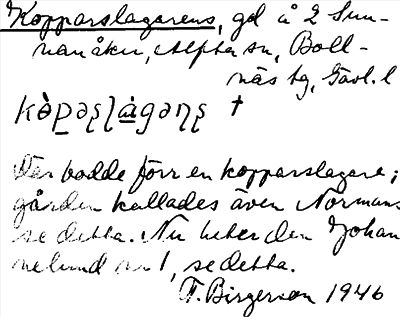 Kopparslagarens, gd å 2 Sun-
nanåker, Alfta sn, Boll-
näs tg, Gävl. l
kòpəʂḷàgəɳʂ †
Där bodde förr en kopparslagare;
gården kallades även Normans
se detta. Nu heter den Johan
nelund nr 1, se detta.
F. Birgerson 1946